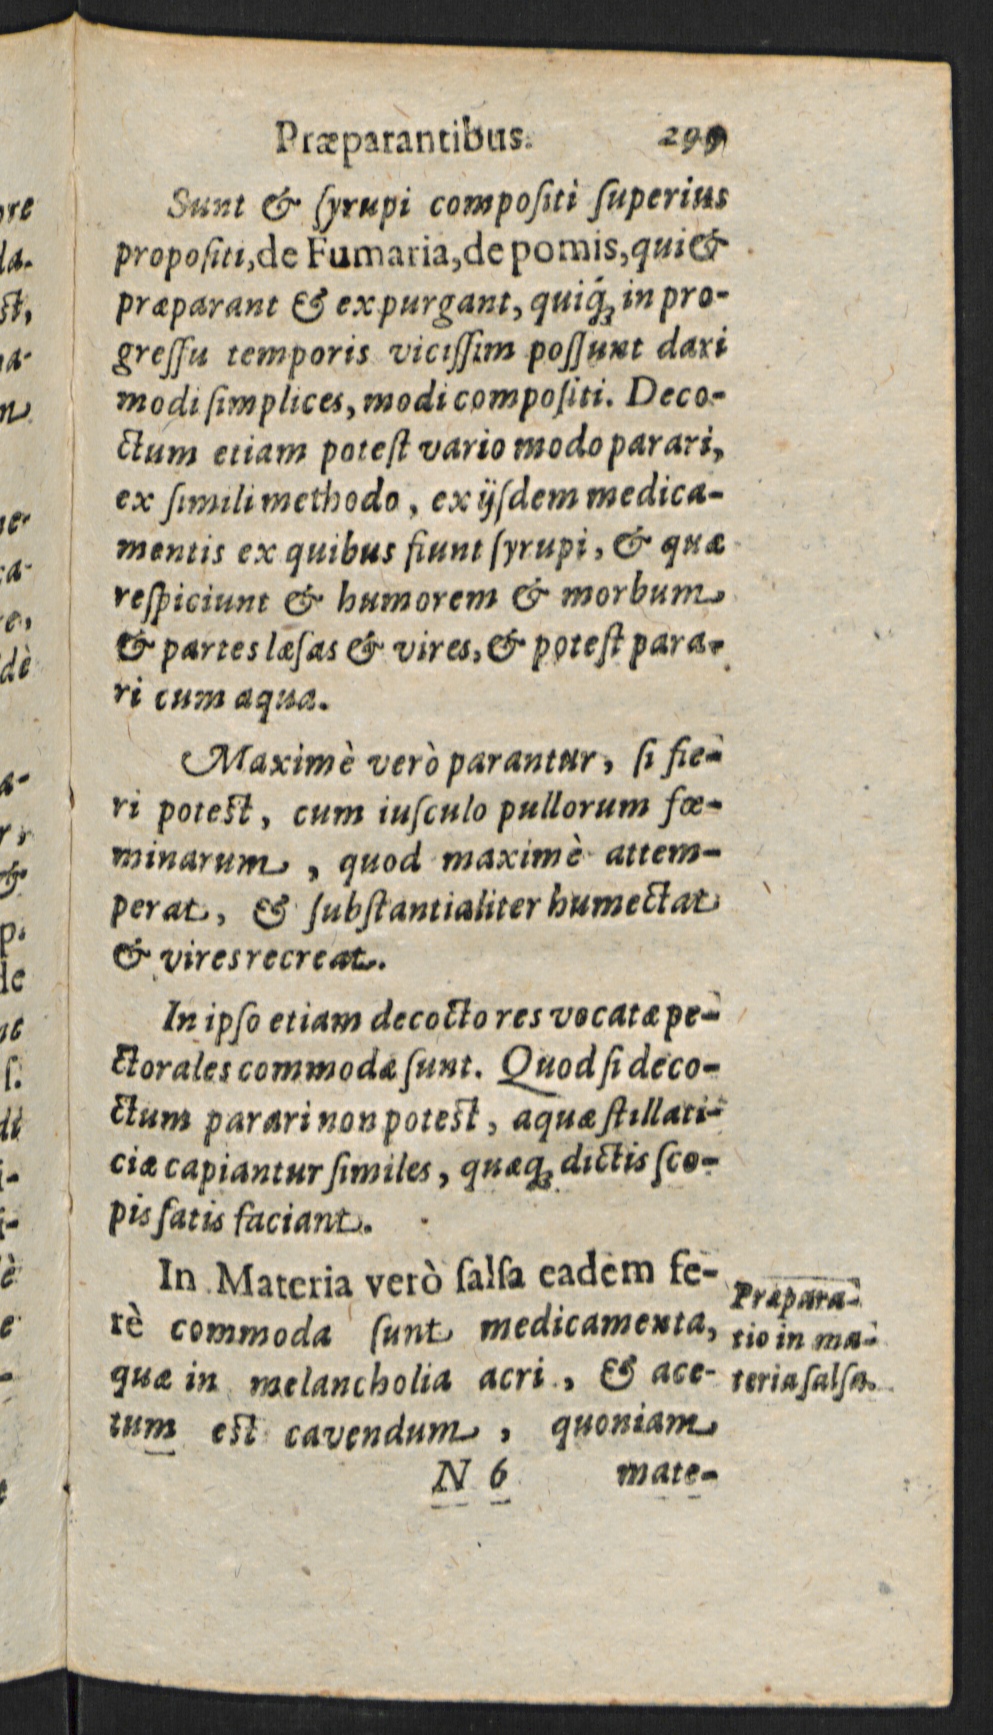 Præparantibus. 299
Sunt & ſyrupi compoſiti ſuperius
propoſiti, de Fumaria, de pomis, qui &
præparant & expurgant, quiq́; in pro-
greſſu temporis viciſſim poſſunt dari
modi ſimplices, modi compoſiti. Deco-
ctum etiam poteſt vario modo parari,
ex ſimili methodo, ex ijſdem medica-
mentis ex quibus fiunt ſyrupi, & quæ
reſpiciunt & humorem & morbum
& partes læſas & vires, & poteſt para-
ri cum aqua.
Maximè verò parantur, ſi fie-
ri poteſt, cum iuſculo pullorum fœ-
minarum, quod maximè attem-
perat, & ſubſtantialiter humectat
& vires recreat.
In ipſo etiam decocto res vocatæ pe-
ctorales commodæ ſunt. Quod ſi deco-
ctum parari non poteſt, aquæ ſtillati-
ciæ capiantur ſimiles, quæq; dictis ſco-
pis ſatis faciant.
In Materia verò ſalſa eadem fe-
rè commoda ſunt medicamenta,
quæ in melancholia acri, & ace-
tum eſt cavendum, quoniam
N 6 mate-
Præpara-
tio in ma-
teria ſalſa.